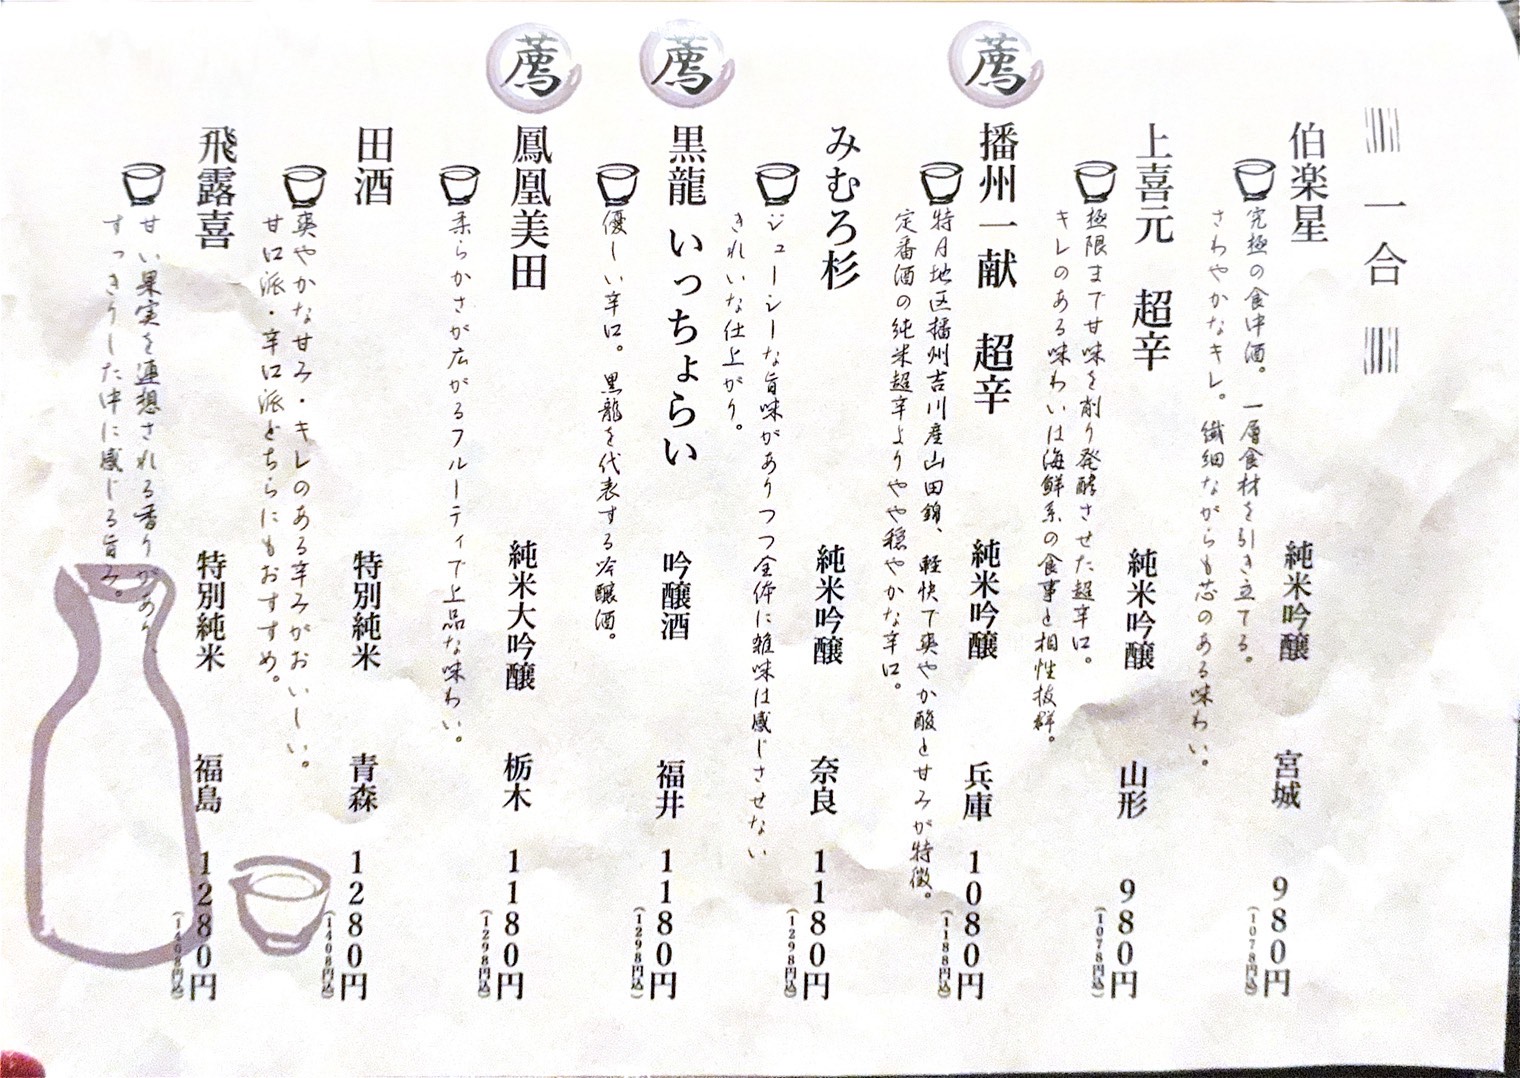 一合
伯楽星 純米吟醸 宮城 980円
(1078円込)
究極の食中酒。一層食材を引き立てる。
さわやかなキレ。繊細ながらも芯のある味わい。
上喜元 超辛 純米吟醸 山形 980円
(1078円込)
極限まで甘味を削り発酵させた超辛口。
キレのある味わいは海鮮系の食事と相性抜群。
薦
播州一献 超辛 純米吟醸 兵庫 1080円
(1188円込)
特A地区播州吉川産山田錦、軽快で爽やか酸と甘みが特徴。
定番酒の純米超辛よりやや穏やかな辛口。
みむろ杉 純米吟醸 奈良 1180円
(1298円込)
ジューシーな旨味がありつつ全体に雑味は感じさせない
きれいな仕上がり。
薦
黒龍 いっちょらい 吟醸酒 福井 1180円
(1298円込)
優しい辛口。黒龍を代表する吟醸酒。
薦
鳳凰美田 純米大吟醸 栃木 1180円
(1298円込)
柔らかさが広がるフルーティで上品な味わい。
田酒 特別純米 青森 1280円
(1408円込)
爽やかな甘み・キレのある辛みがおいしい。
甘口派・辛口派どちらにもおすすめ。
飛露喜 特別純米 福島 1280円
(1408円込)
甘い果実を連想される香りがあり、
すっきりした中に感じる旨み。